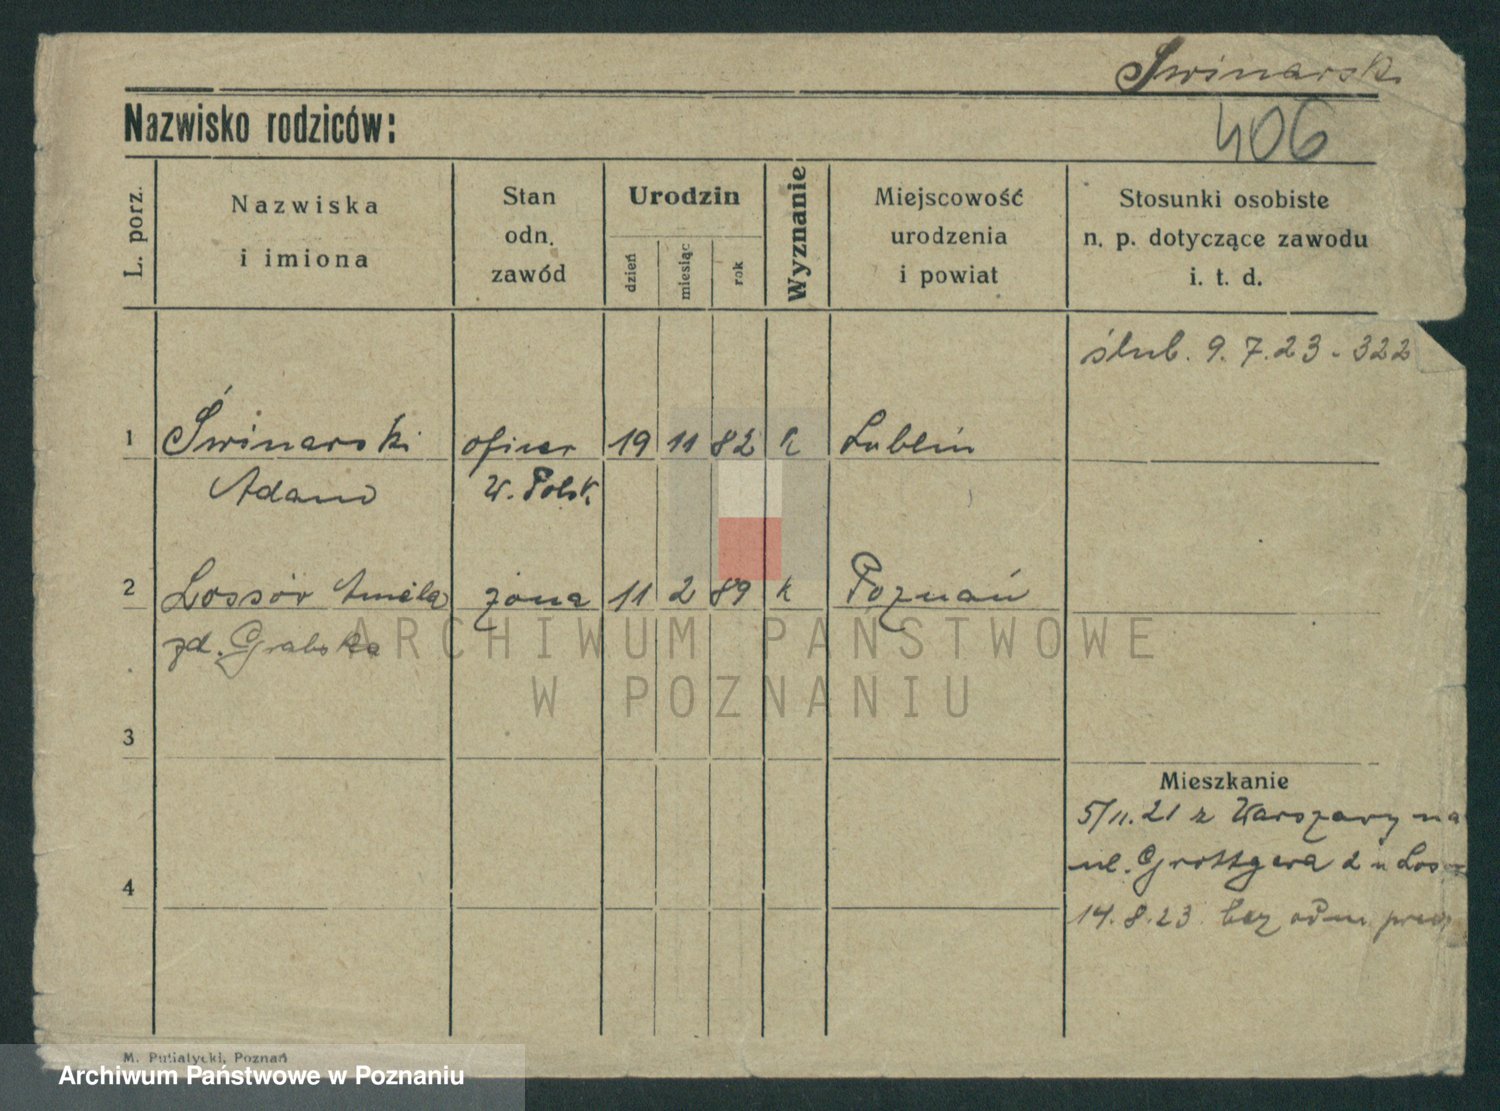 Świnarski
406
Nazwisko rodziców:
L. porz.
Nazwiska
i imiona
Stan
odn.
zawód
Urodzin
dzień
miesiąc
rok
Wyznanie
Miejscowość
urodzenia
i powiat
Stosunki osobiste
n. p. dotyczące zawodu
i. t. d.
ślub. 9. 7. 23 - 322
1 Świnarski oficer 19 11 82 k Lublin
Adam W. Polsk.
2 Lossów Amela żona 11 2 89 k Poznań
zd. Grabska
3
Mieszkanie
5/11. 21 z Warszawy na
ul. Grottgera 2 u Los
4
14. 8. 23 bez odm
ARCHIWUM PAŃSTWOWE
W POZNANIU
M. Putiatycki, Poznań
Archiwum Państwowe w Poznaniu